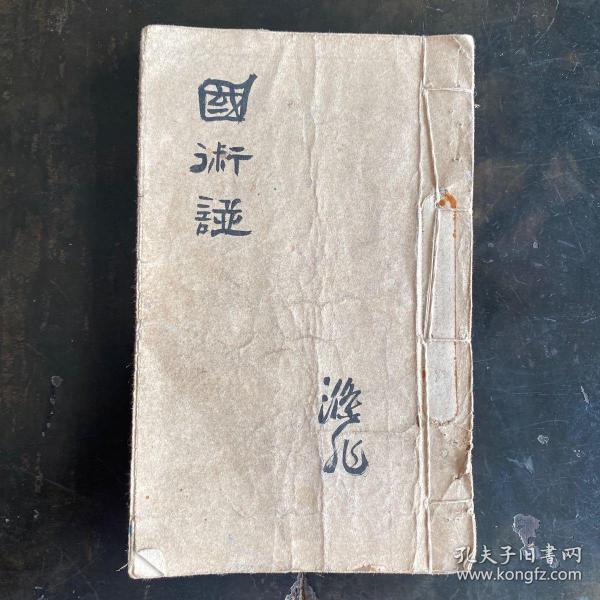 國術譜
孔夫子旧書网
www.kongfz.com